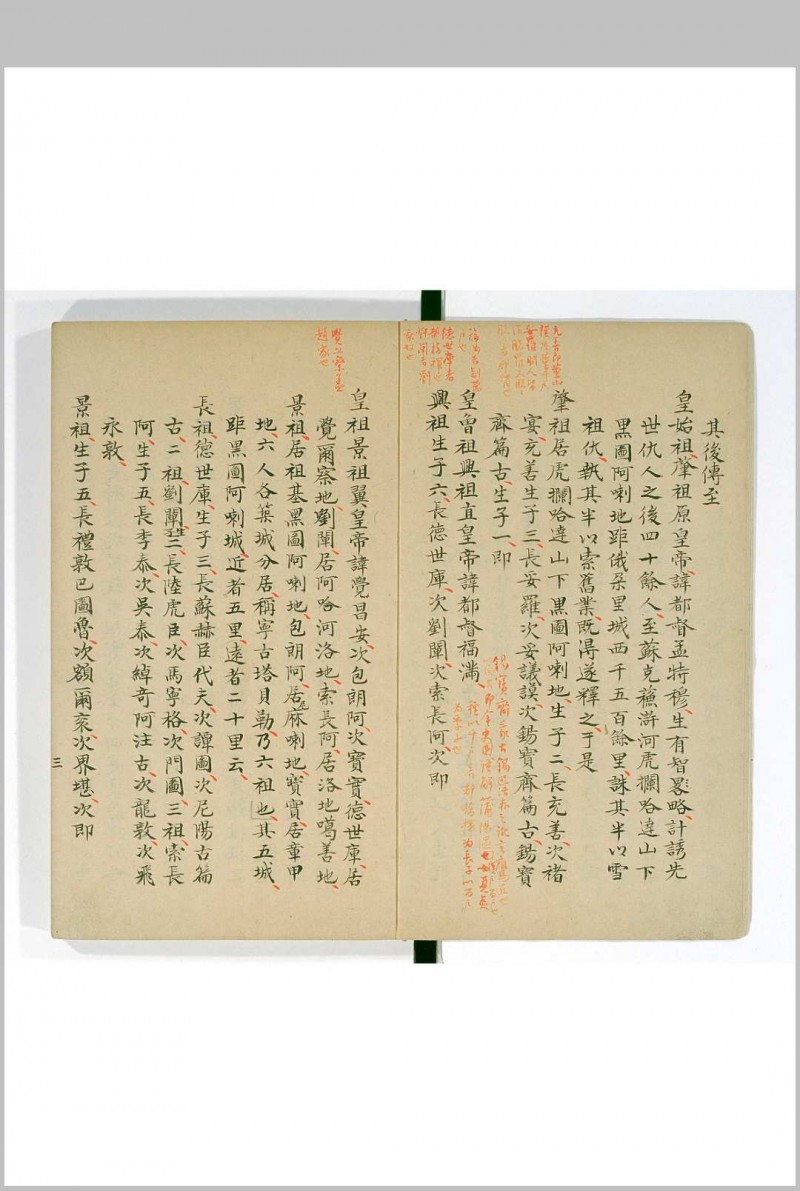 其後傳至
皇始祖肇祖原皇帝諱都督孟特穆生有智畧計誘先
世仇人之後四十餘人至蘇克蘇滸河虎攔哈達山下
黑圖阿喇地距俄朶里城西千五百餘里誅其半以雪
祖仇執其半以索舊業既得遂釋之于是
肇祖居虎攔哈達山下黑圖阿喇地生子二長充善次褚
宴充善生子三長妥羅次妥議謨次錫寶齊篇古錫寶
齊篇古生子一即
皇曾祖興祖直皇帝諱都督福滿
興祖生子六長德世庫次劉闡次索長阿次即
皇祖景祖翼皇帝諱覺昌安次包朗阿次寶實德世庫居
覺爾察地劉闡居阿哈河洛地索長阿居洛地噶善地
景祖居祖基黑圖阿喇地包朗阿居麻喇地寶實居章甲
地六人各築城分居稱寧古塔貝勒乃六祖也其五城
距黑圖阿喇城近者五里遠者二十里云
長祖德世庫生子三長蘇赫臣代夫次譚圖次尼陽古篇
古二祖劉闡生三長陸虎臣次馬寧格次門圖三祖索長
阿生子五長李泰次吳泰次綽奇阿注古次龍敦次飛
永敦
景祖生子五長禮敦巴圖魯次額爾袞次界堪次即
三